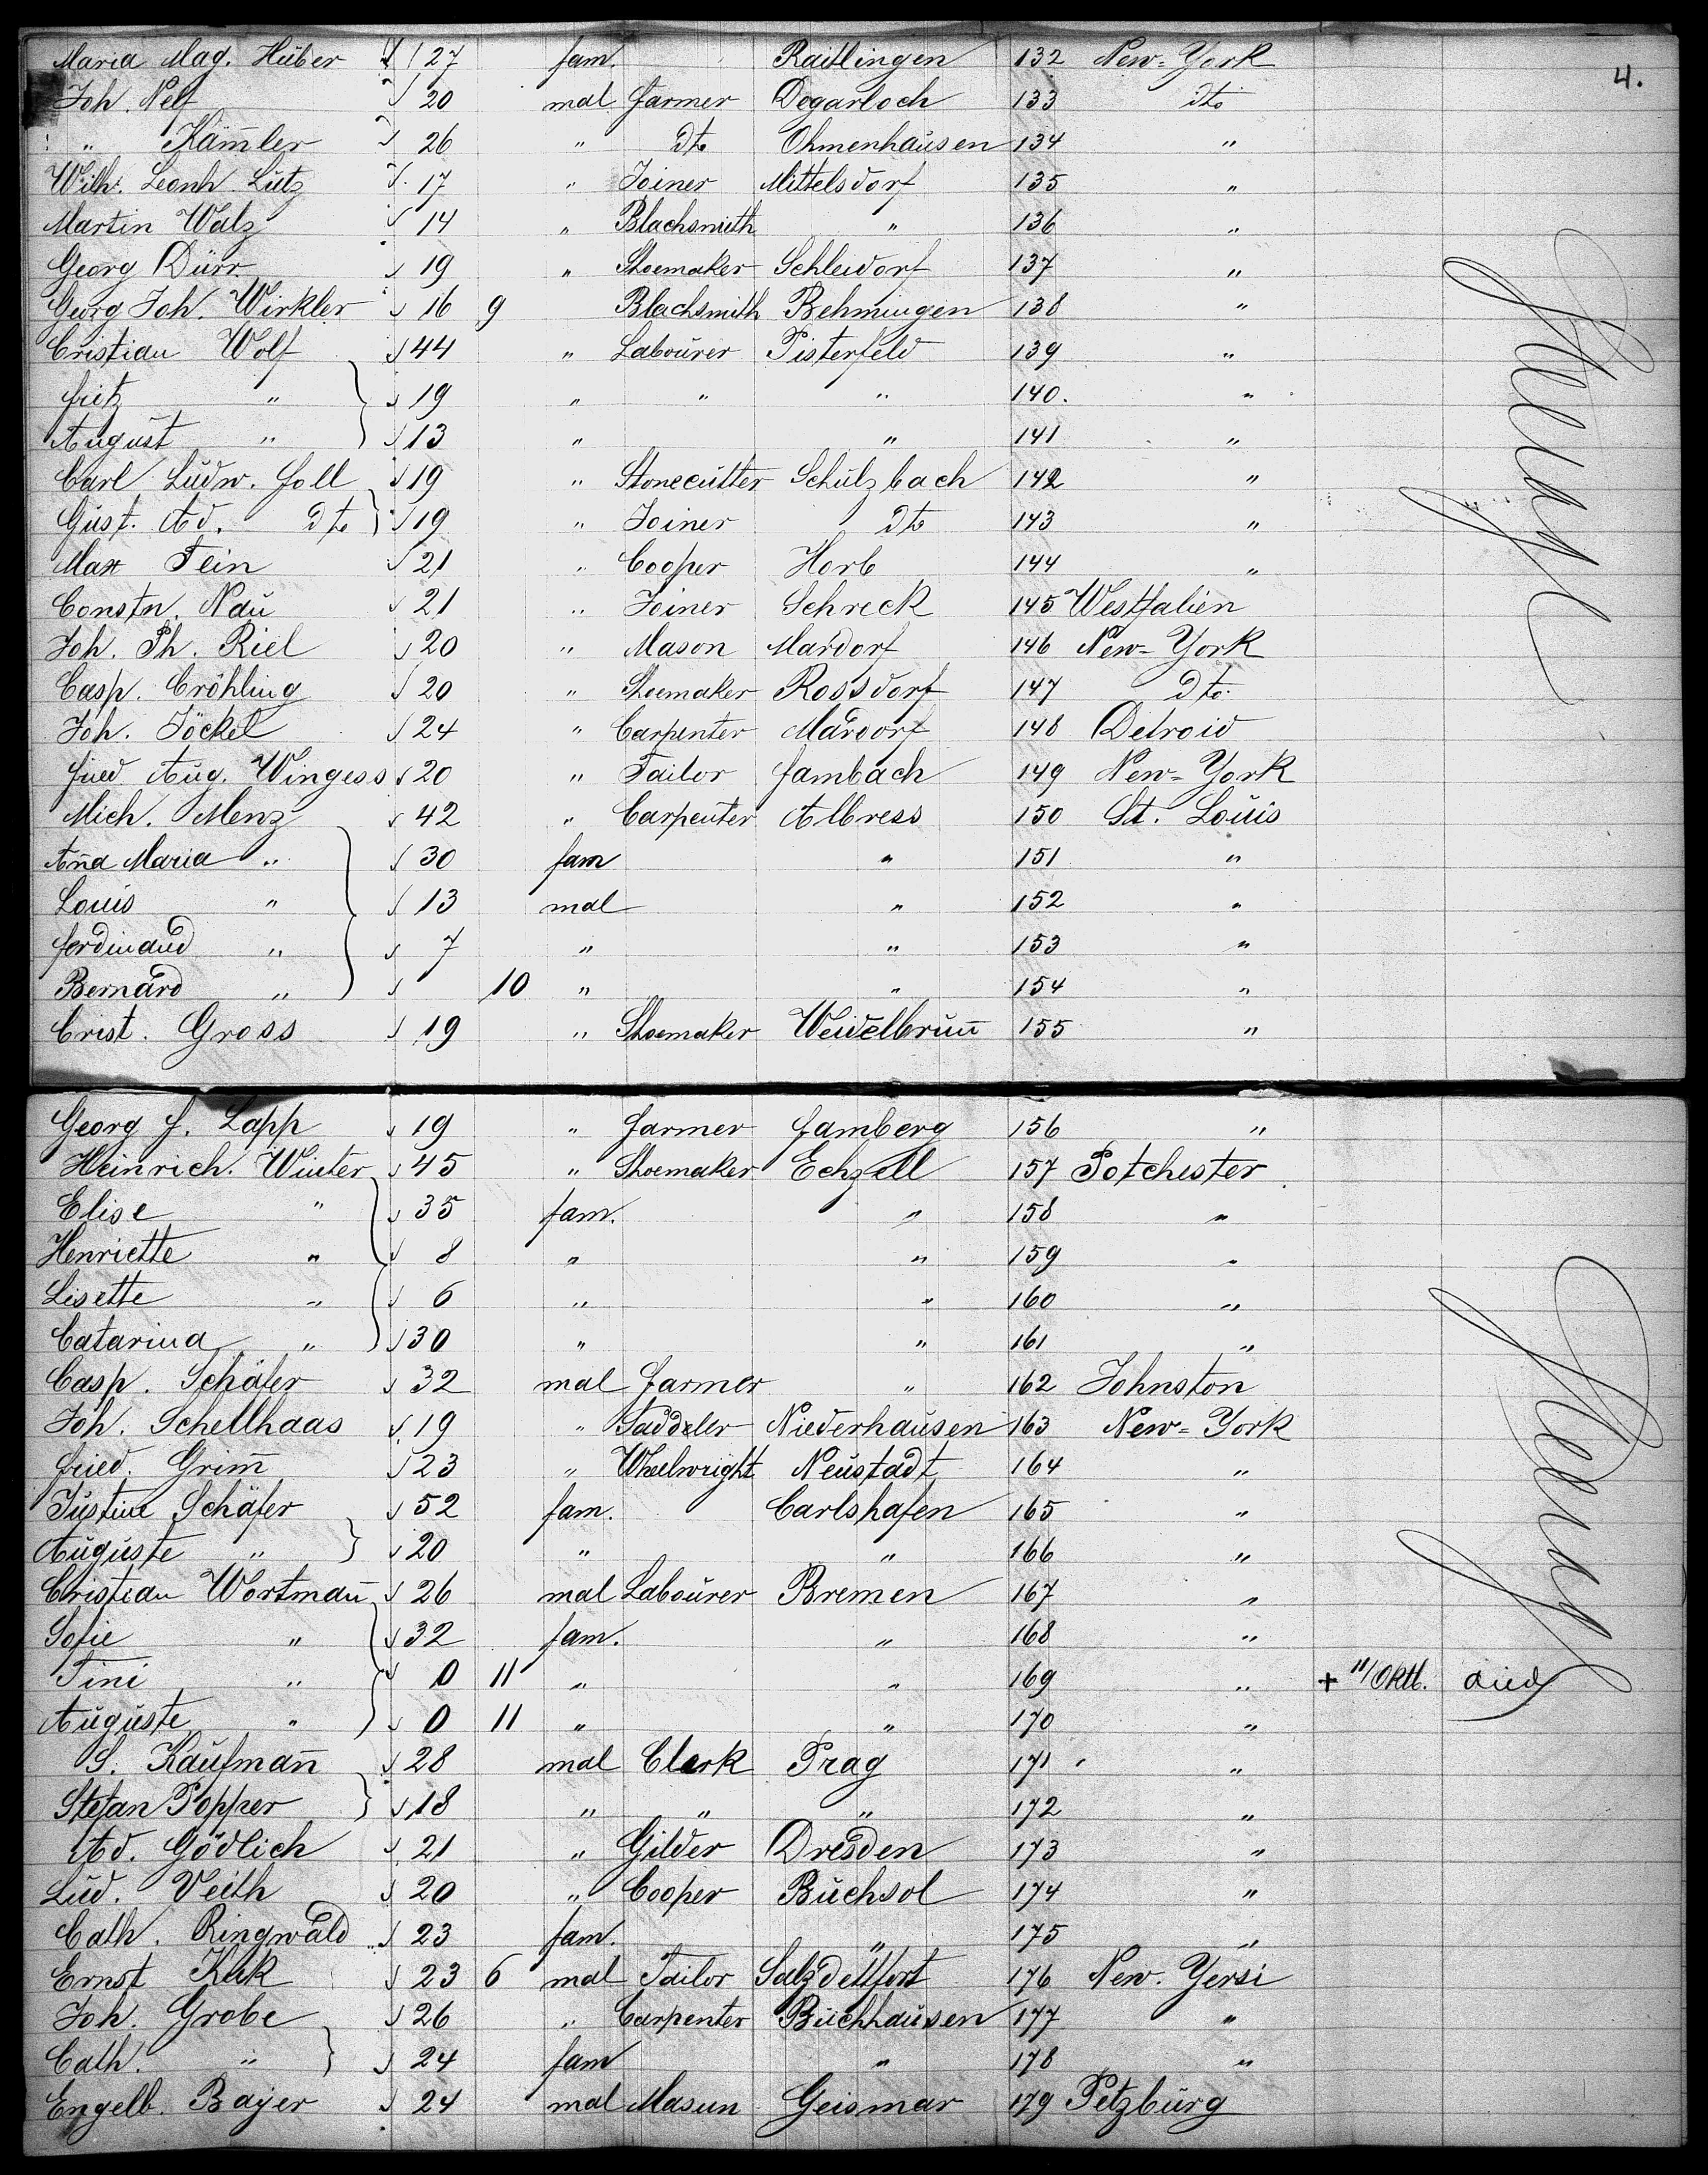 4.
Maria Mag. Hüber 27 fam. Raitlingen 132 New-York
Joh. Nelf 20 mal farmer Degarloch 133 dto
" Kam̄ler 26 " dto Ohmenhaüsen 134 "
Wilh. Leonh. Lütz 17 " Joiner Mittelsdorf 135 "
Martin Walz 14 " Blachsmith " 136 "
Georg Dürr 19 " Shoemaker Schleidorf 137 "
Georg Joh. Wirkler 16 9 Blachsmith Behmingen 138 "
Cristian Wolf 44 " Laboürer Pisterfeld 139 "
fritz " 19 " " " 140. "
Aügüst " 13 " " 141 "
Carl Lüdw. foll 19 " Stonecütter Schülzbach 142 "
Güst. Ad. dto 19 " Joiner dto 143 "
Max Fein 21 " Cooper Horb 144 "
Constn. Naü 21 " Joiner Schreck 145 Westfalien
Joh. Ph. Riel 20 " Mason Mardorf 146 New-York
Casp. Cröhling 20 " Shoemaker Rossdorf 147 dto.
Joh. Jöckel 24 " Carpenter Mardorf 148 Detroid
fried Aüg. Wingess 20 " Tailor fambach 149 New-York
Mich. Menz 42 " Carpenter Albress 150 St. Loüis
An̄a Maria " 30 fam " 151 "
Louis " 13 mal " 152 "
ferdinand " 7 " " 153 "
Bernard " 10 " " 154 "
Crist. Gross 19 " Shoemaker Weidelbrün̄ 155 "
Georg f. Lapp 19 " farmer famberg 156 "
Heinrich. Winter 45 " Shoemaker Echzell 157 Potchester
Elise " 35 fam. " 158 "
Henriette " 8 " " 159 "
Lisette " 6 " " 160 "
Catarina " 30 " " 161 "
Casp. Schäfer 32 mal farmer " 162 Johnston
Joh. Schellhaas 19 " Saddeler Niederhaüsen 163 New-York
fried. Grim̄ 23 " Wheelwright Neüstadt 164 "
Jüstine Schäfer 52 fam. Carlshafen 165 "
Aügüste " 20 " " 166 "
Cristian Wortman̄ 26 mal Laboürer Bremen 167 "
Sofie " 32 fam. " 168 "
Tini " 0 11 " " 169 " + 11/Oktb. died
Aügüste " 0 11 " " 170 "
S. Kaüfman̄ 28 mal Clerk Prag 171 "
Stefan Popper 18 " " " 172 "
Ad. Gödlich 21 " Gilder Dresden 173 "
Lüd. Veith 20 " Cooper Büchsol 174 "
Cath. Ringwald 23 fam. " 175 "
Ernst Kuk 23 6 mal Tailor Salzdettfort 176 New. Yersi
Joh. Grobe 26 " Carpenter Büchhaüsen 177 "
Cath. " 24 fam " 178 "
Engelb. Bayer 24 mal Masun Geismar 179 Petzbürg